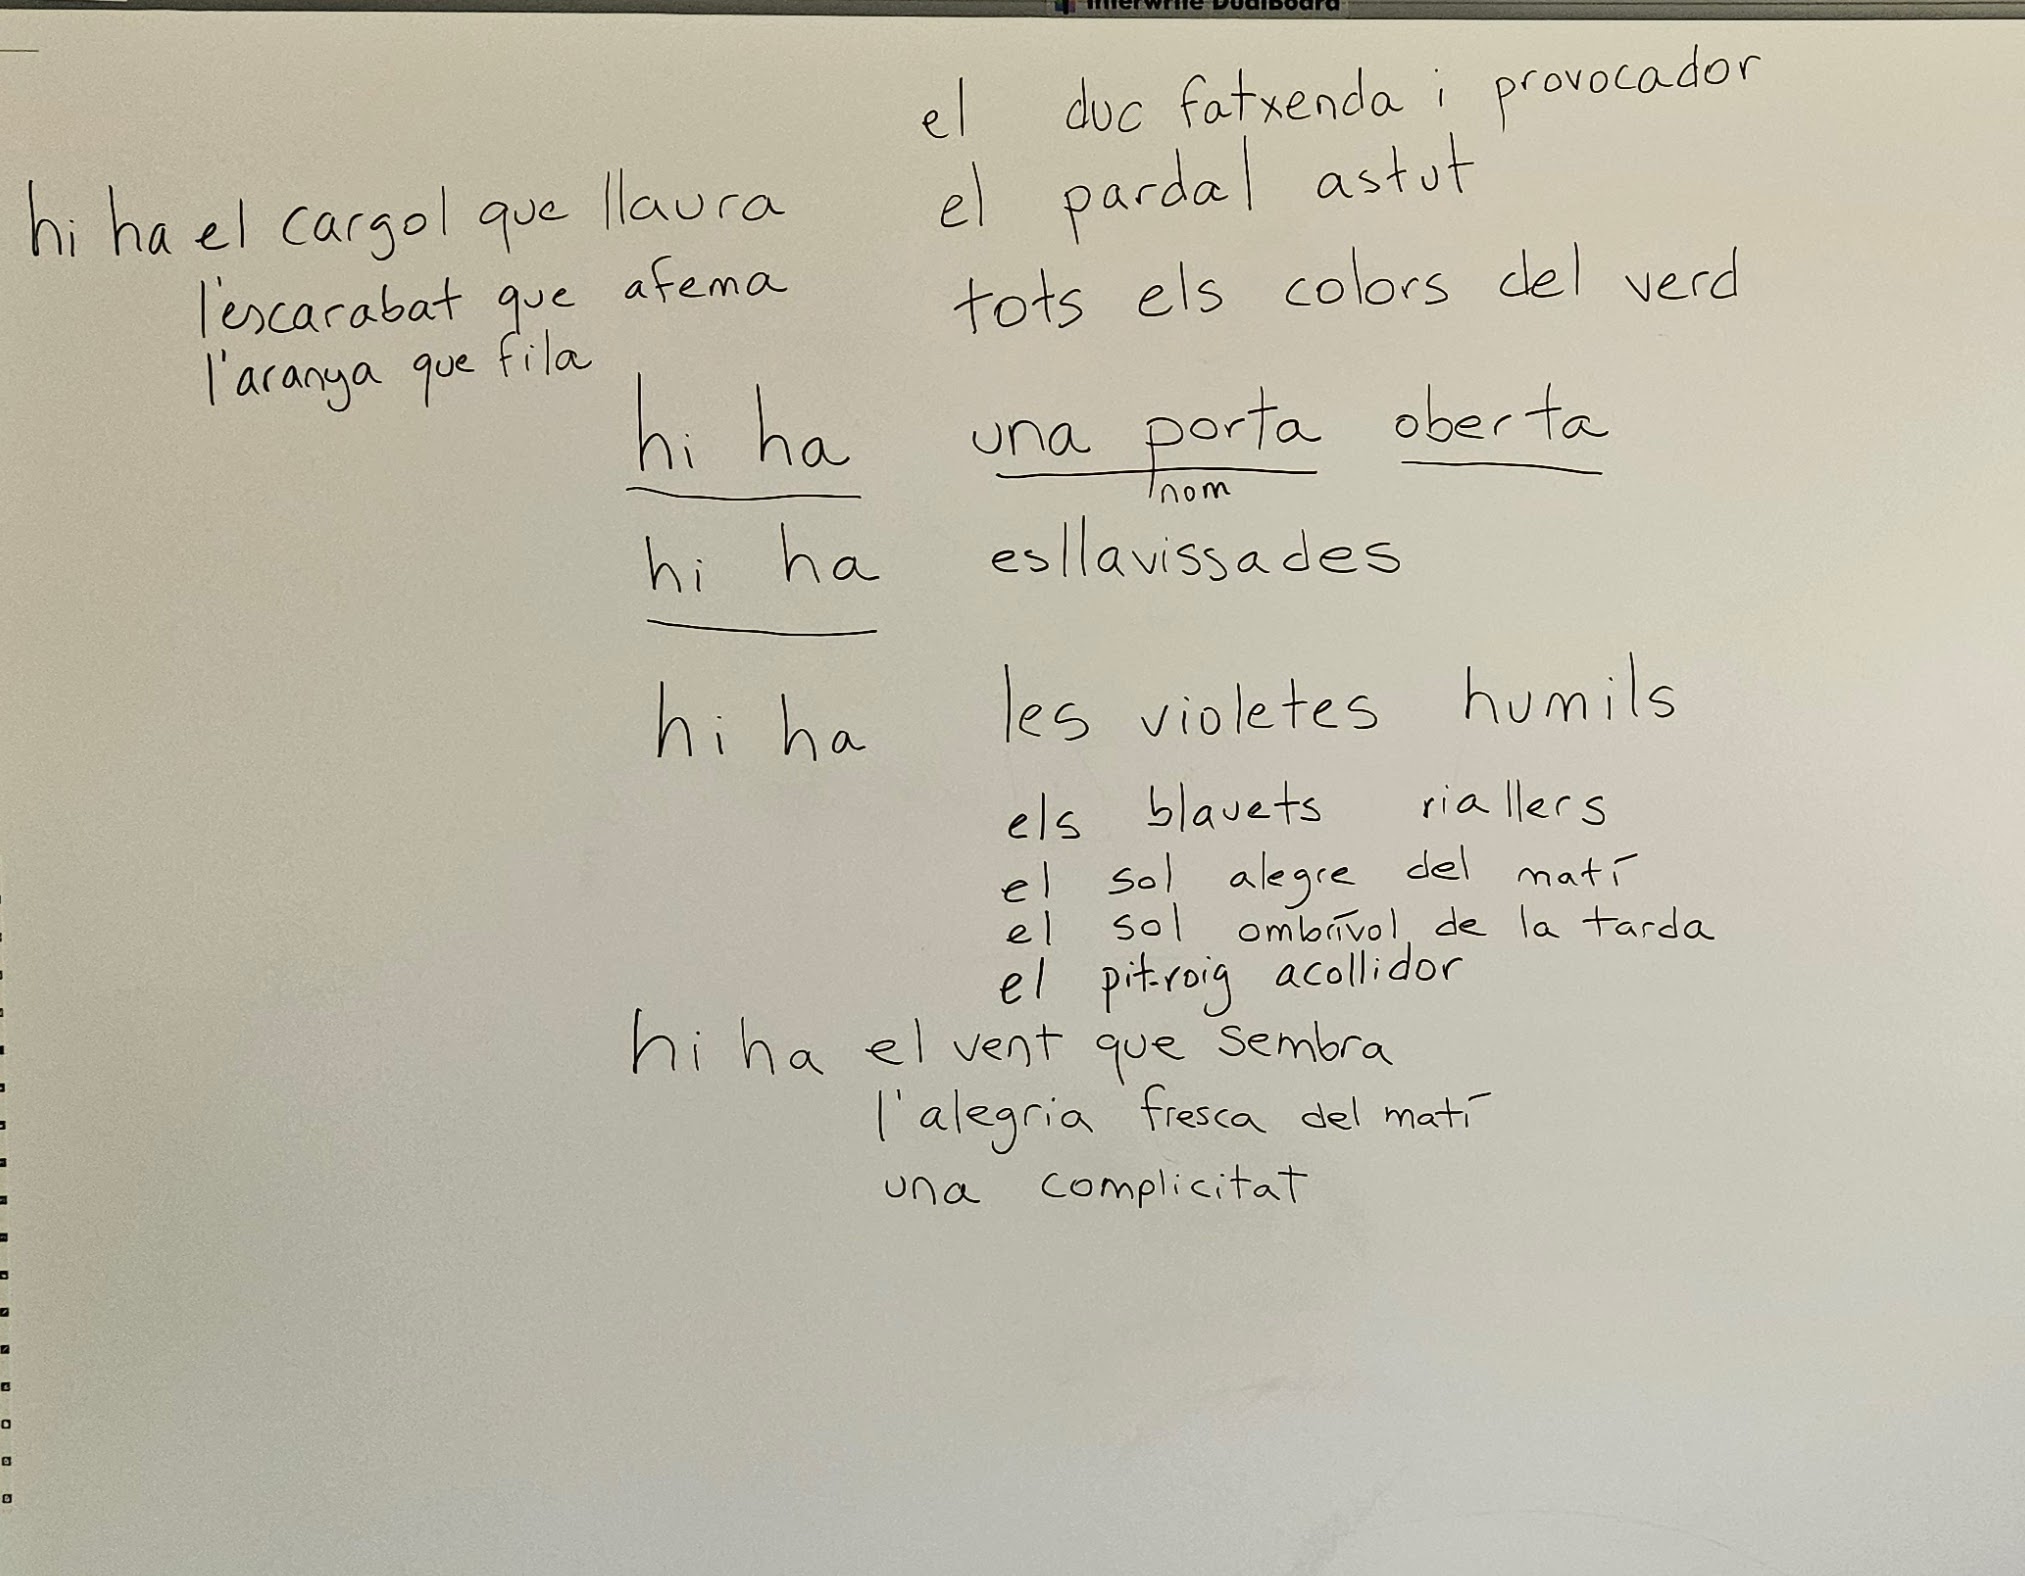 Interwrite DualBoard
el duc fatxenda i provocador
el pardal astut
tots els colors del verd
hi ha el cargol que llaura
l'escarabat que afema
l'aranya que fila
hi ha una porta oberta
nom
hi ha esllavissades
hi ha les violetes humils
els blavets riallers
el sol alegre del matí
el sol ombrívol de la tarda
el pit-roig acollidor
hi ha el vent que sembra
l'alegria fresca del matí
una complicitat